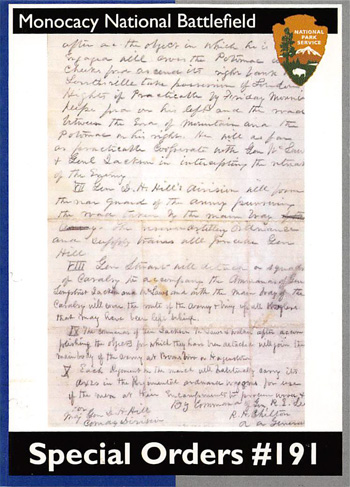 Monocacy National Battlefield
NATIONAL
PARK
SERVICE
after the object in which he is
engaged will cross the Potomac at
Cheeks ford ascend its right bank to
Lovettsville take possession of Loudoun
Heights if practicable by Friday morning
Keeps ford on his left and the road
between the end of Mountain and the
Potomac on his right. He will as far
as practicable cooperate with Gen Mc Laws
& Genl Jackson in intercepting the retreat
of the Enemy
VII Gen D. H. Hill's division will form
the rear guard of the army pursuing
the road taken by the main body
the reserve artillery Ordnance
and supply trains will precede Gen
Hill
VIII Gen Stuart will detach a squadron
of Cavalry to accompany the Commands of Gen
Longstreet Jackson and McLaws and with the main body of the
Cavalry will cover the route of the army & bring up all stragglers
that may have been left behind
IX The commands of Gen Jackson McLaws & Walker after accom
plishing the objects for which they have been detached will join the
main body of the army at Boonsboro or Hagerstown
X Each Regiment on the march will habitually carry its
axes in the Regimental ordnance wagons for use
of the men at their encampments to procure wood &c
By Command of Gen R. E. Lee
For
Maj Gen D. H. Hill
Comdg Division
R. H. Chilton
A A General
Special Orders #191